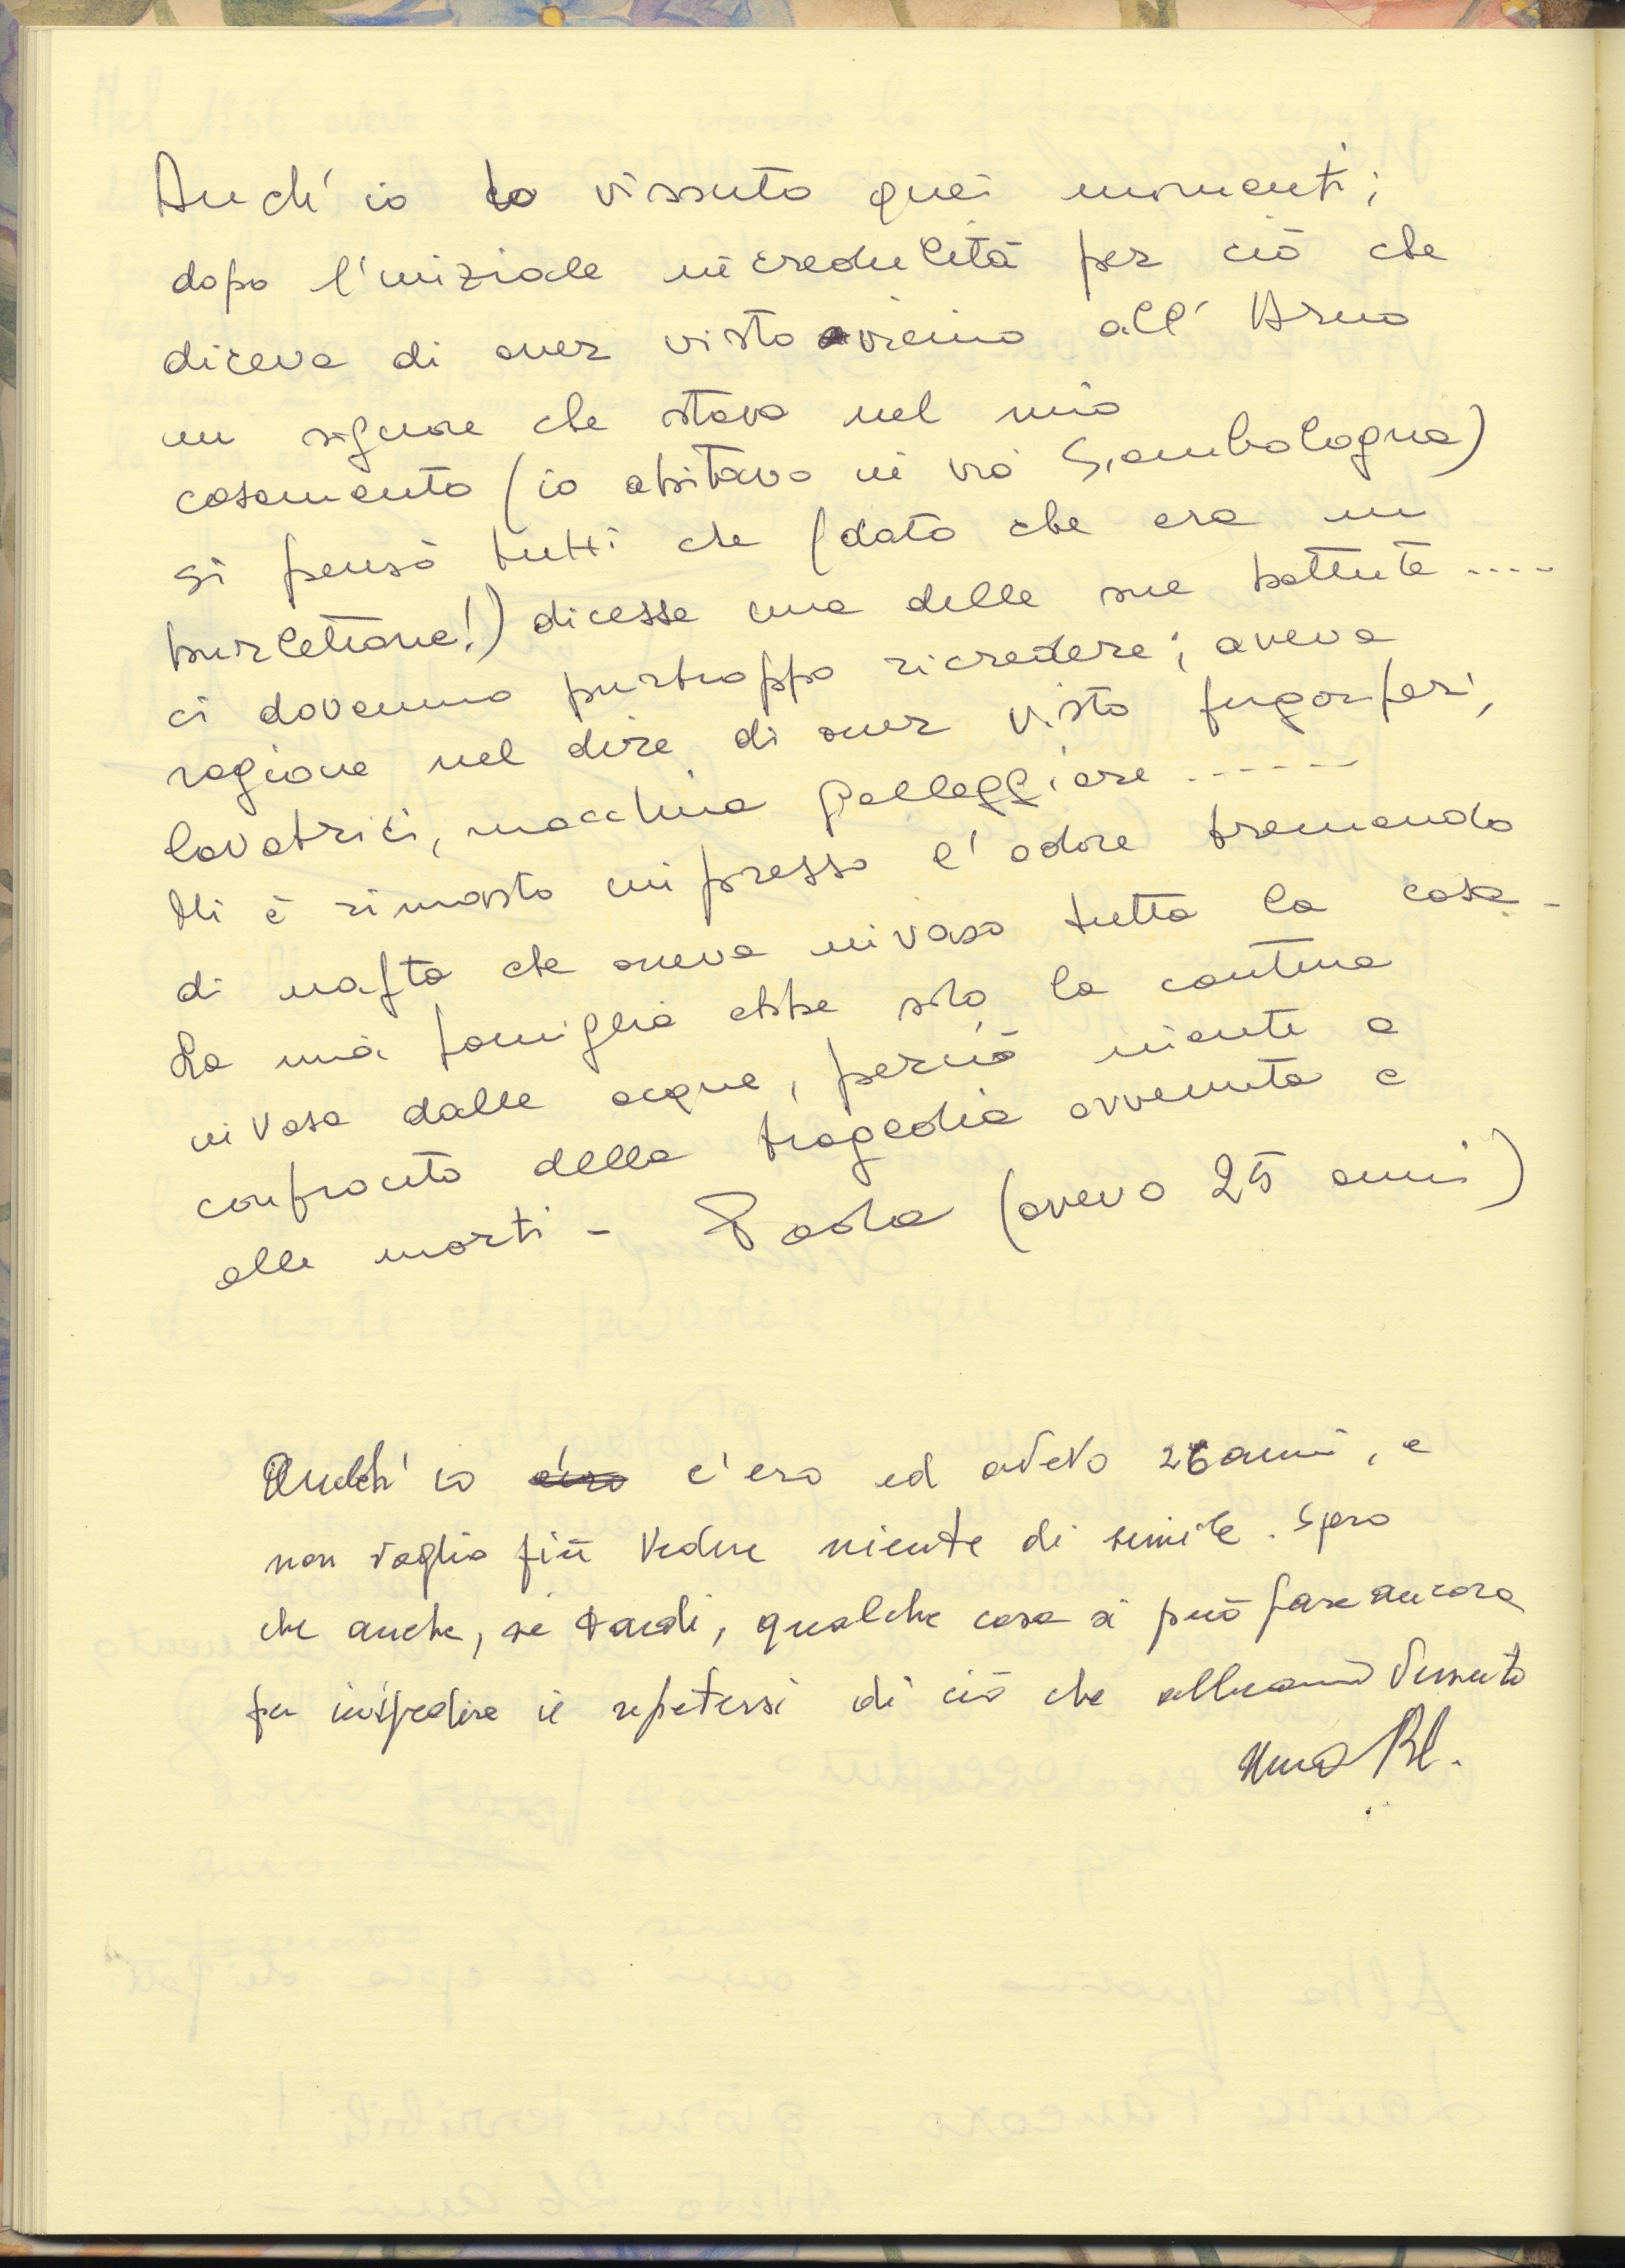 Anch'io ho vissuto quei momenti;
dopo l'iniziale incredulità per ciò che
diceva di aver visto vicino all'Arno
un signore che stava nel mio
casamento (io abitavo in via Giambologna)
si pensò tutti che (dato che era un
burlettone!) dicesse una delle sue battute ....
ci dovemmo purtroppo ricredere; aveva
ragione nel dire di aver visto frigoriferi,
lavatrici, macchine galleggiare ......
Mi è rimasto impresso l'odore tremendo
di nafta che aveva invaso tutta la casa -
La mia famiglia ebbe solo la cantina
invasa dalle acque, perciò niente a
confronto della tragedia avvenuta e
alle morti - Paola (avevo 25 anni)
Anch'io c'ero ed avevo 26 anni, e
non voglio più vedere niente di simile. Spero
che anche, se tardi, qualche cosa si può fare ancora
per impedire il ripetersi di ciò che abbiamo vissuto